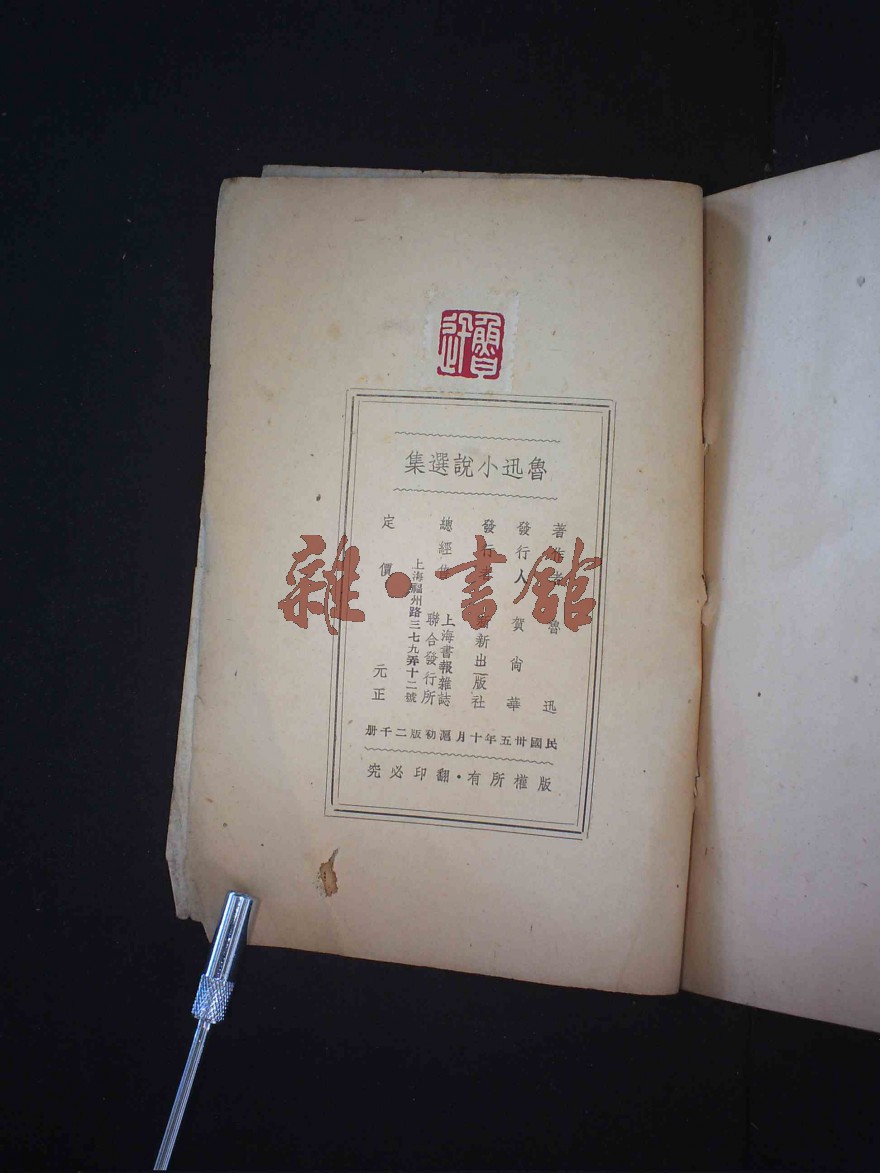 魯迅
魯迅小說選集
著作者 魯迅
發行人 賀尙華
發行者 新出版社
總經售 上海書報雜誌
聯合發行所
上海福州路三七九弄十二號
定價 元正
民國卅五年十月滬初版二千册
版權所有・翻印必究
雜・書館